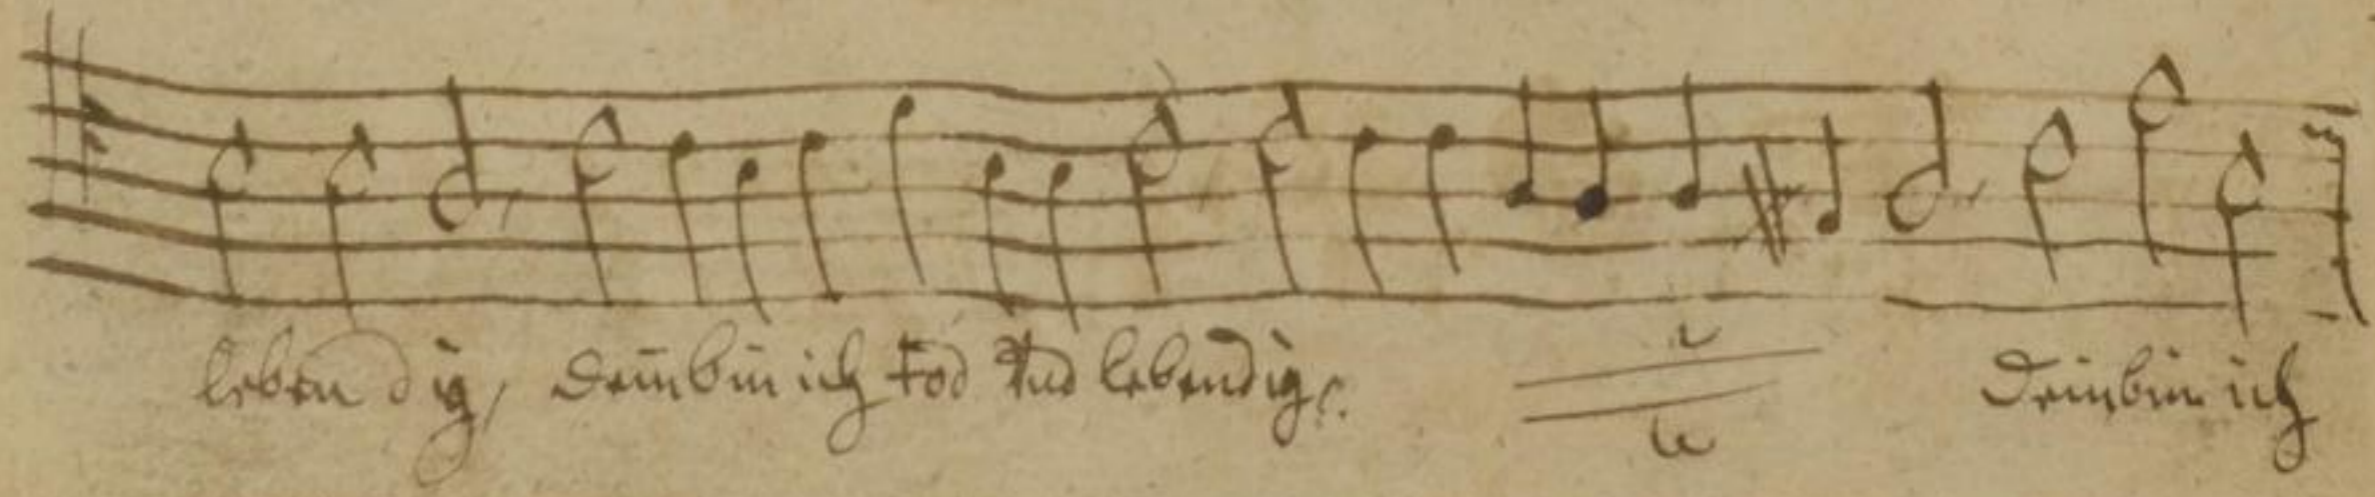 lebendig, dein bin ich tod und lebendig. dein bin ich